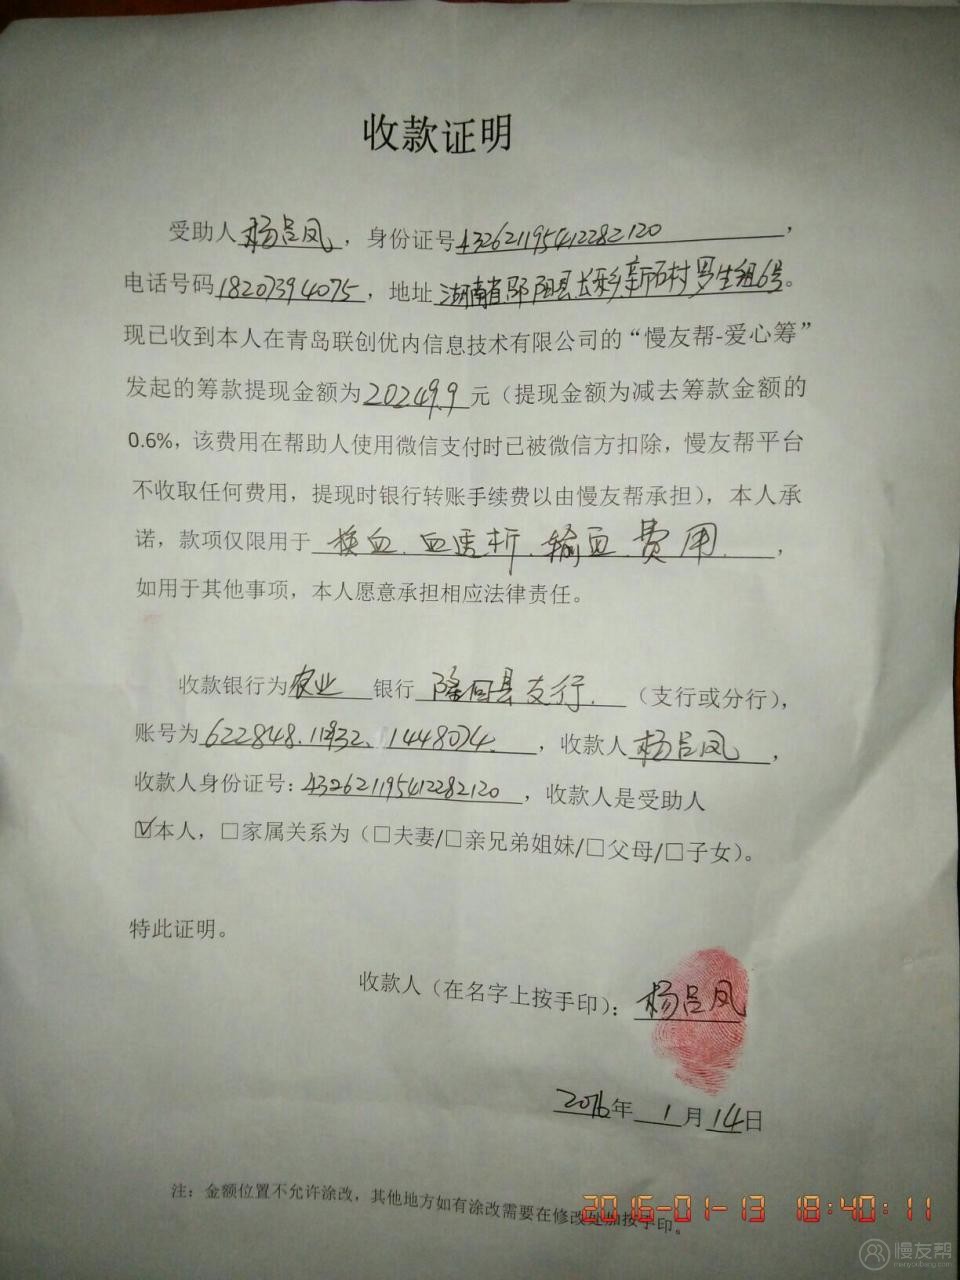 收款证明
受助人杨吕凤，身份证号432621195412282120，
电话号码18207394075，地址湖南省邵阳县长乐乡新石村罗生组6号。
现已收到本人在青岛联创优内信息技术有限公司的“慢友帮-爱心筹”
发起的筹款提现金额为20249.9元（提现金额为减去筹款金额的
0.6%，该费用在帮助人使用微信支付时已被微信方扣除，慢友帮平台
不收取任何费用，提现时银行转账手续费以由慢友帮承担），本人承
诺，款项仅限用于换血、血透析、输血、费用，
如用于其他事项，本人愿意承担相应法律责任。
收款银行为农业银行隆回县支行.（支行或分行），
账号为622848.，收款人杨吕凤，
收款人身份证号：432621195412282120，收款人是受助人
☑本人，□家属关系为（□夫妻/□亲兄弟姐妹/□父母/□子女）。
特此证明。
收款人（在名字上按手印）：杨吕凤
2016年1月14日
注：金额位置不允许涂改，其他地方如有涂改需要在修改处加按手印。
2016-01-13 18:40:11
慢友帮